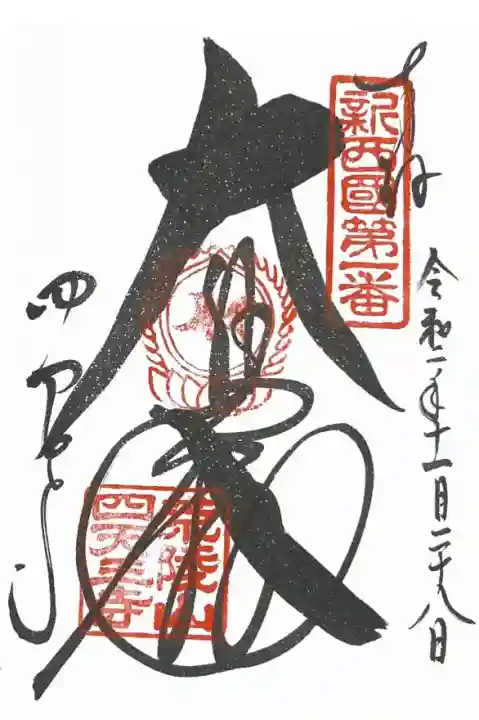 奉拝
新西國第一番
令和二年十一月二十八日
大
荒陵山
四天王寺
四天王寺